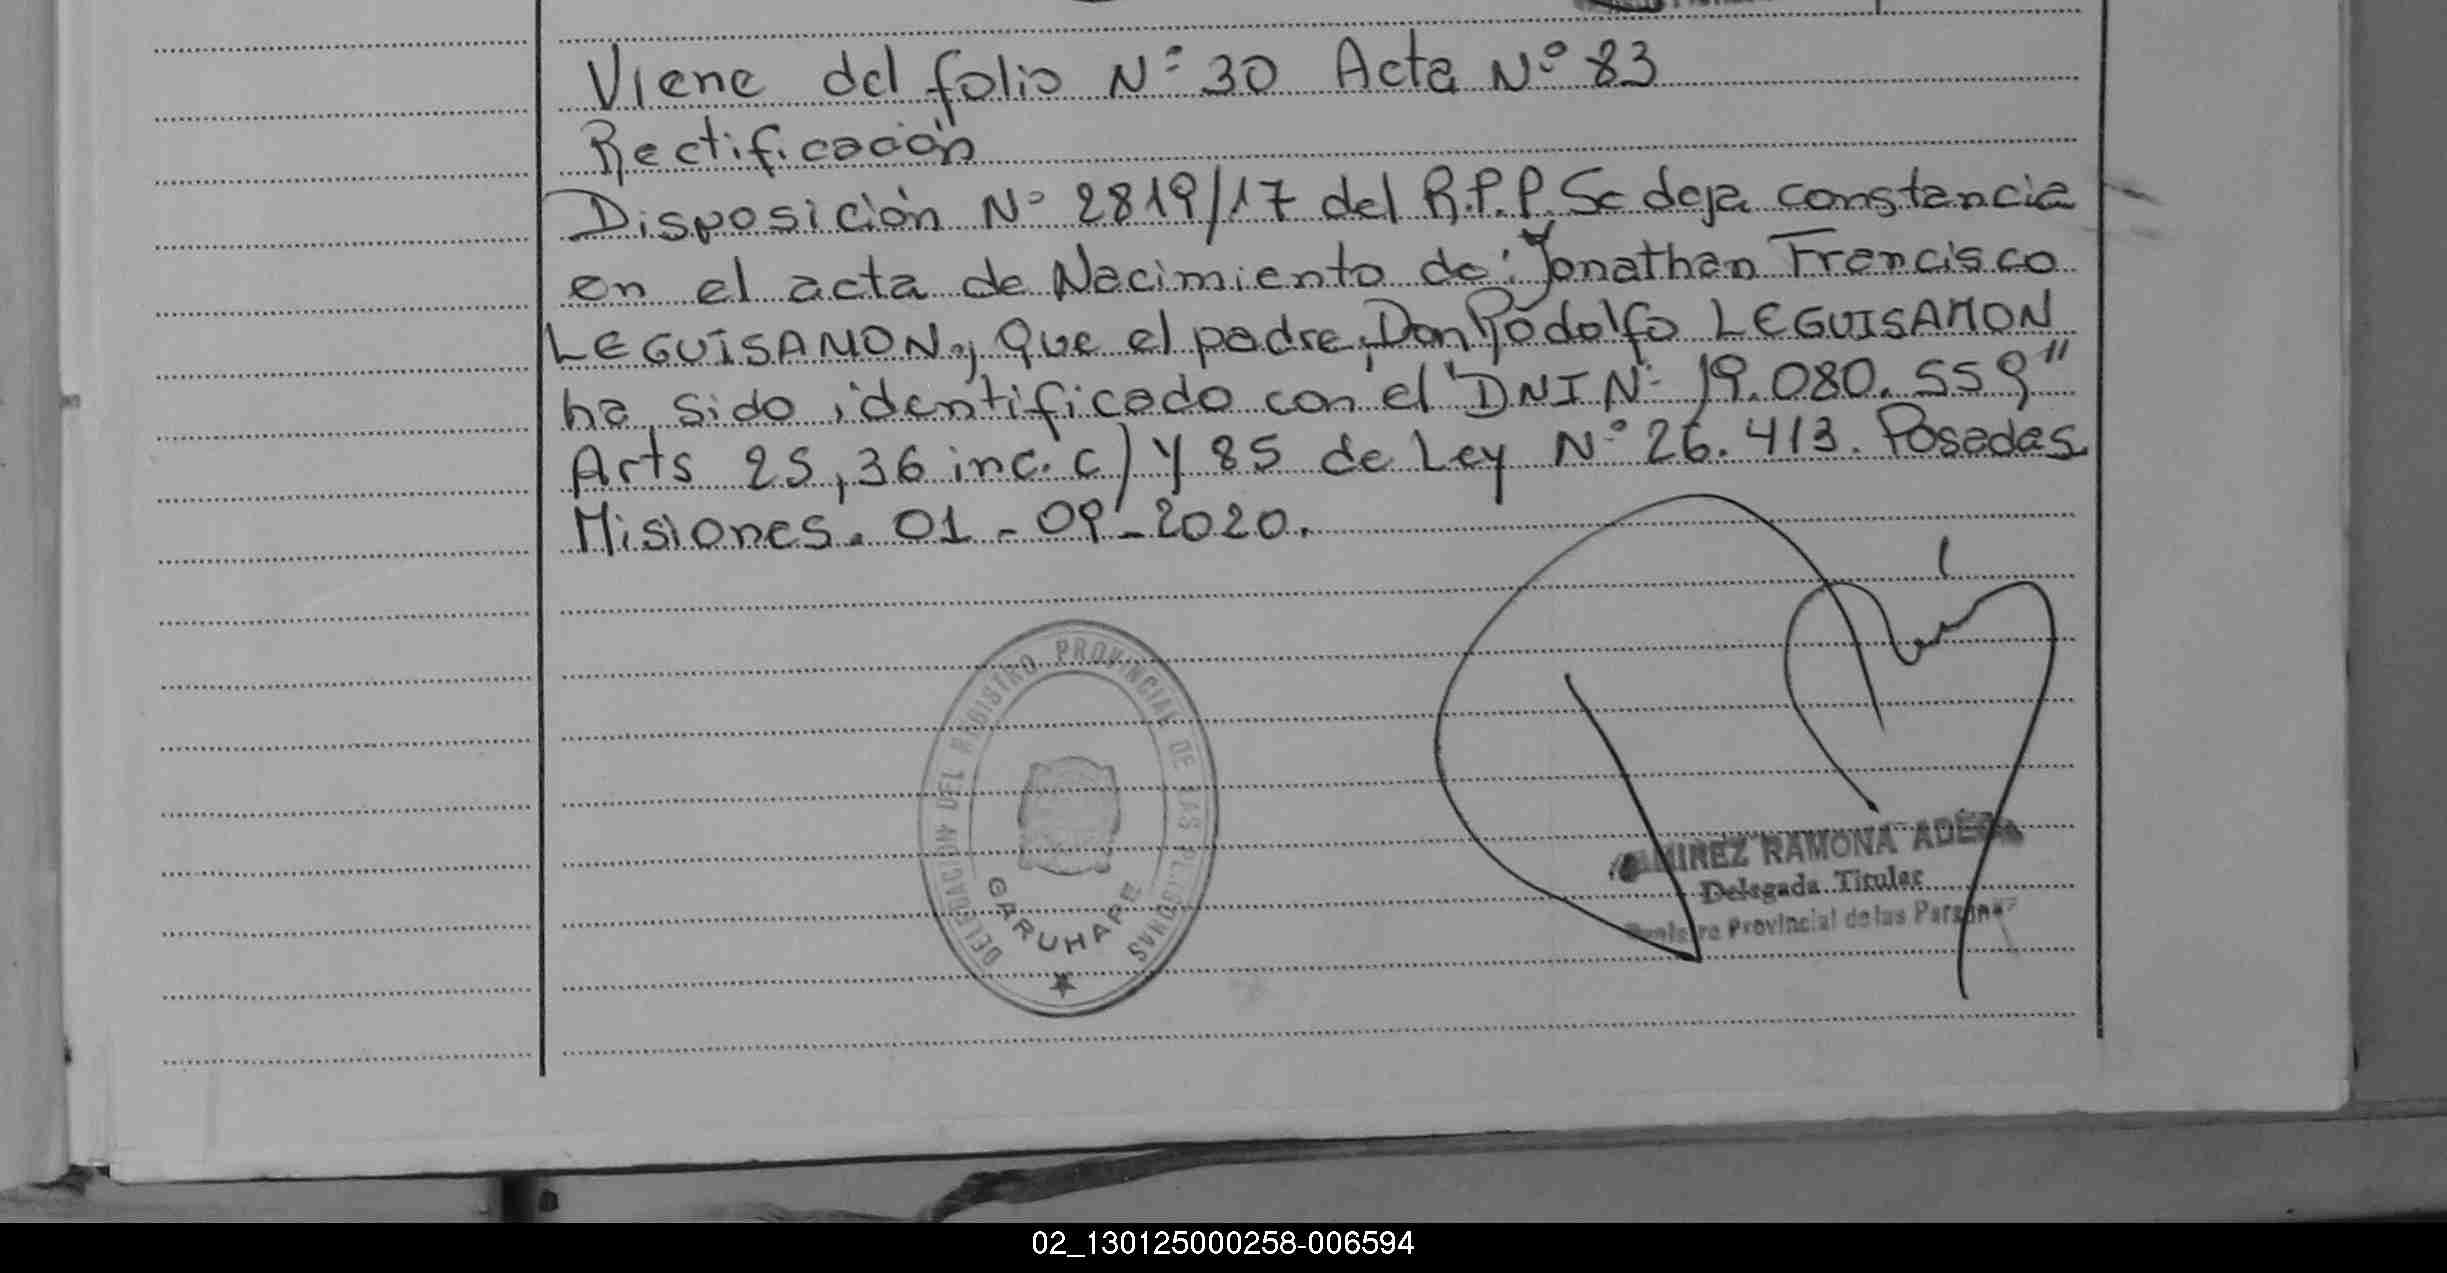 Viene del folio N° 30 Acta N° 83
Rectificación
Disposición N° 2819/17 del R.P.P. Se deja constancia
en el acta de Nacimiento de: Jonathan Francisco
LEGUISAMON, que el padre, Don Rodolfo LEGUISAMON
ha sido identificado con el "DNI N° 19.080.559"
Arts 25, 36 inc. c) y 85 de Ley N° 26.413. Posadas
Misiones. 01-09-2020.
DELEGACION DEL REGISTRO PROVINCIAL DE LAS PERSONAS
GARUHAPE
RAMONA
Delegada Titular
Provincial de las Personas
02_130125000258-006594